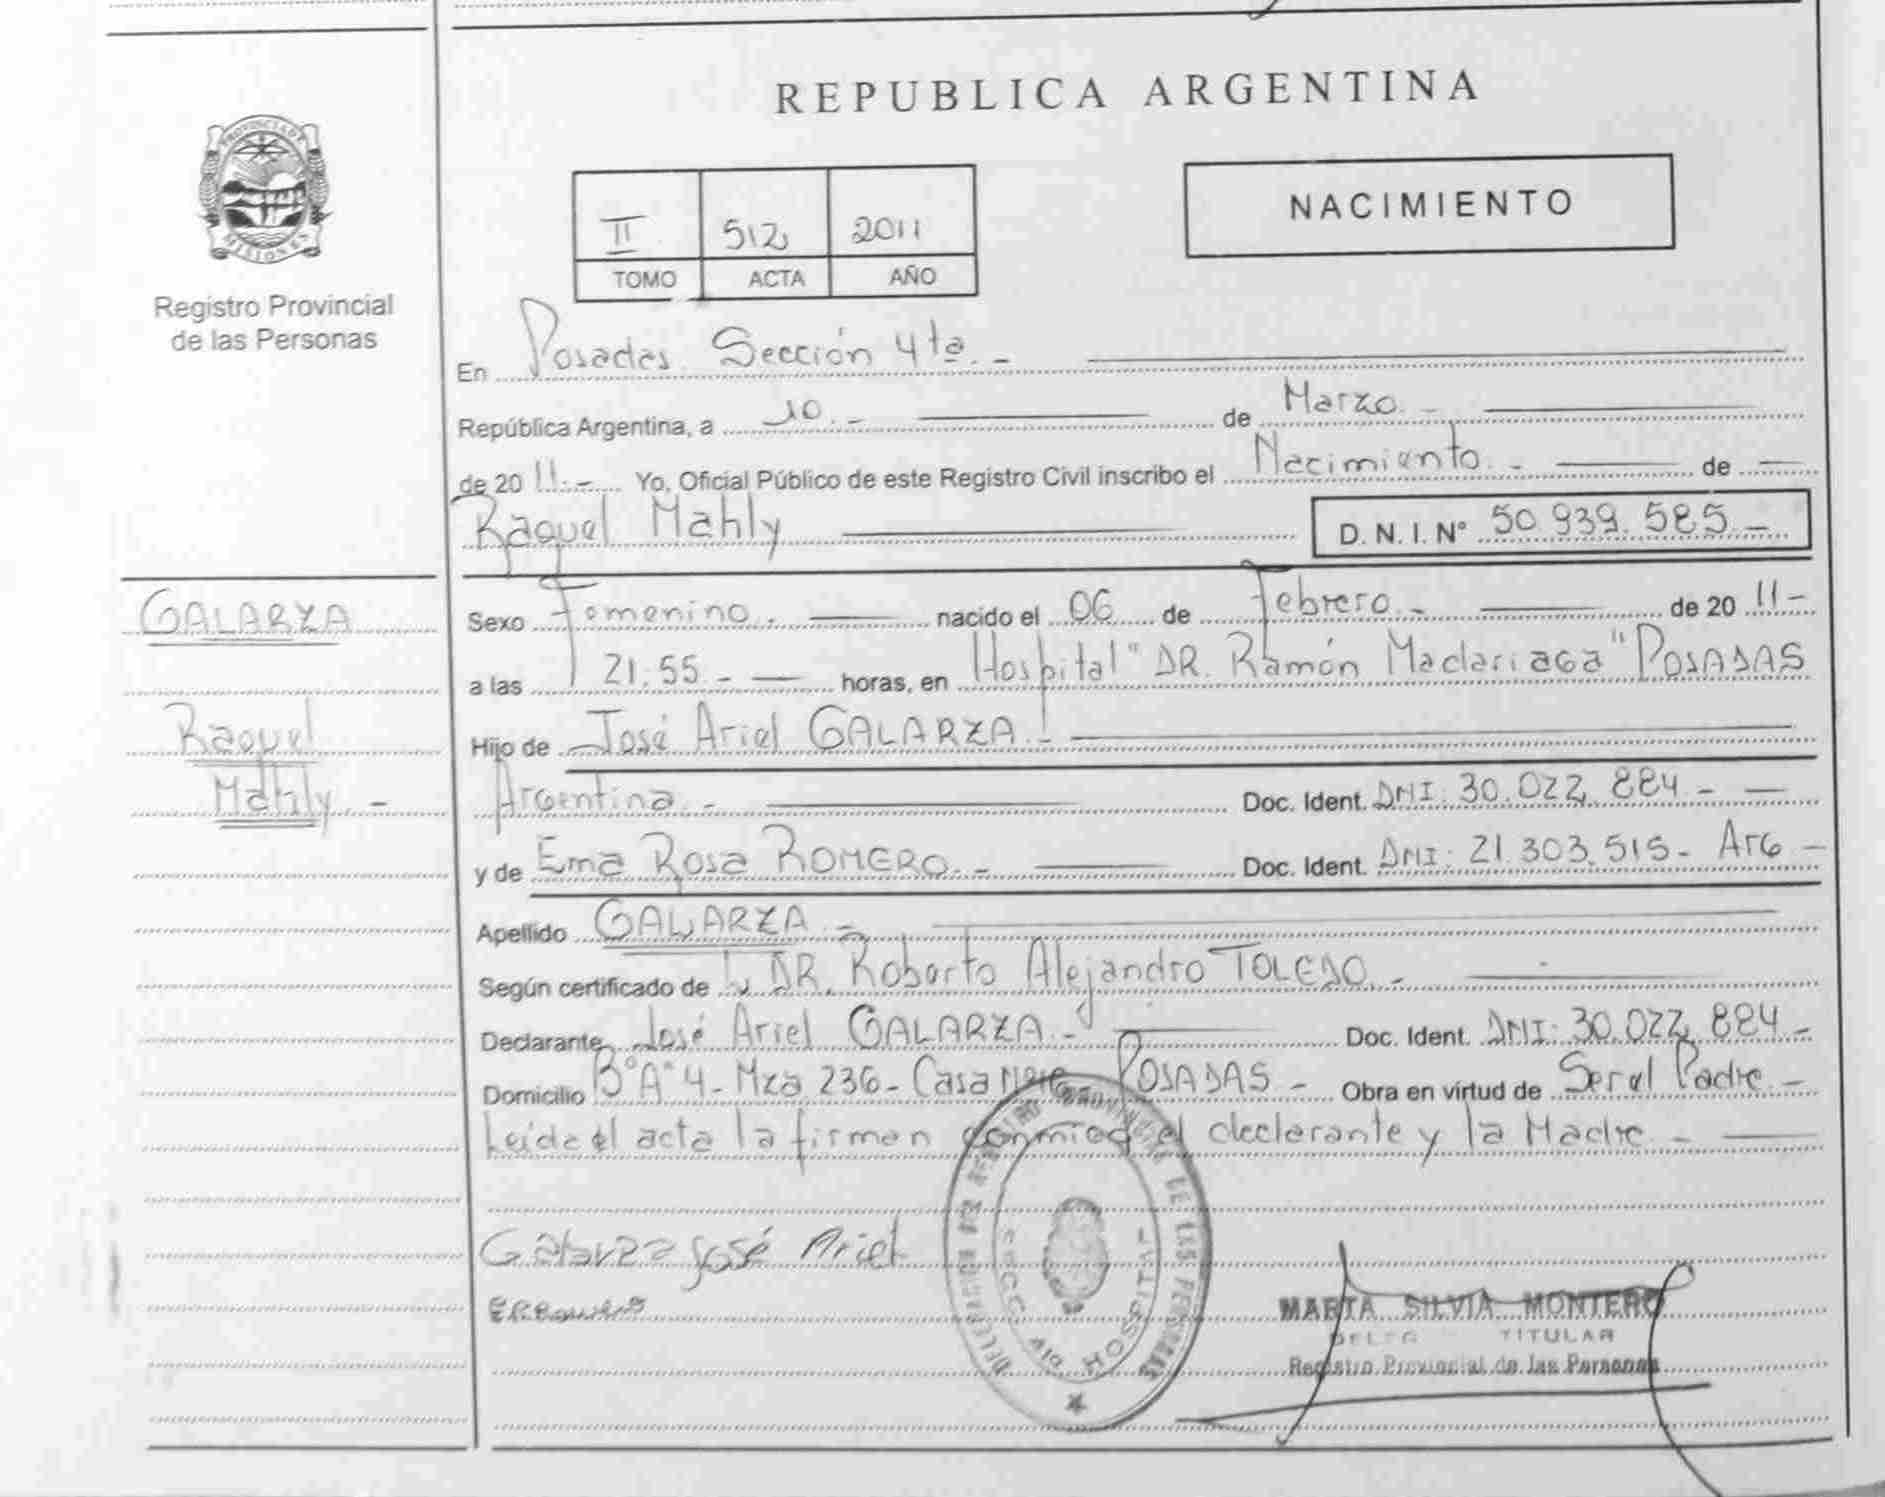 REPUBLICA ARGENTINA
PROVINCIA DE
MISIONES
Registro Provincial
de las Personas
II 512 2011
TOMO ACTA AÑO
NACIMIENTO
En Posadas Sección 4ta. -
República Argentina, a 10. - de Marzo. -
de 20 11. - Yo, Oficial Público de este Registro Civil inscribo el Nacimiento. - de -
Raquel Mahly D. N. I. Nº 50.939.585. -
GALARZA
Raquel
Mahly. -
Sexo Femenino. nacido el 06 de Febrero. - de 20 11 -
a las 21.55. - horas, en Hospital "DR. Ramón Madariaga" POSADAS
Hijo de José Ariel GALARZA. -
Argentina. - Doc. Ident. DNI: 30.022.884 -
y de Ema Rosa ROMERO. - Doc. Ident. DNI: 21.303.515 - ArG -
Apellido GALARZA. -
Según certificado de DR. Roberto Alejandro TOLEDO. -
Declarante José Ariel GALARZA. - Doc. Ident. DNI: 30.022.884 -
Domicilio B° "A" 4 - Mza 236 - Casa POSADAS - Obra en virtud de Ser el Padre. -
Leida el acta la firman conmigo el declarante y la Madre. -
Galarza José Ariel
DELEGACION DEL REGISTRO PROVINCIAL DE LAS PERSONAS
SECC. 4ta. HOSPITAL
MARTA SILVIA MONTERO
TITULAR
Registro Provincial de las Personas